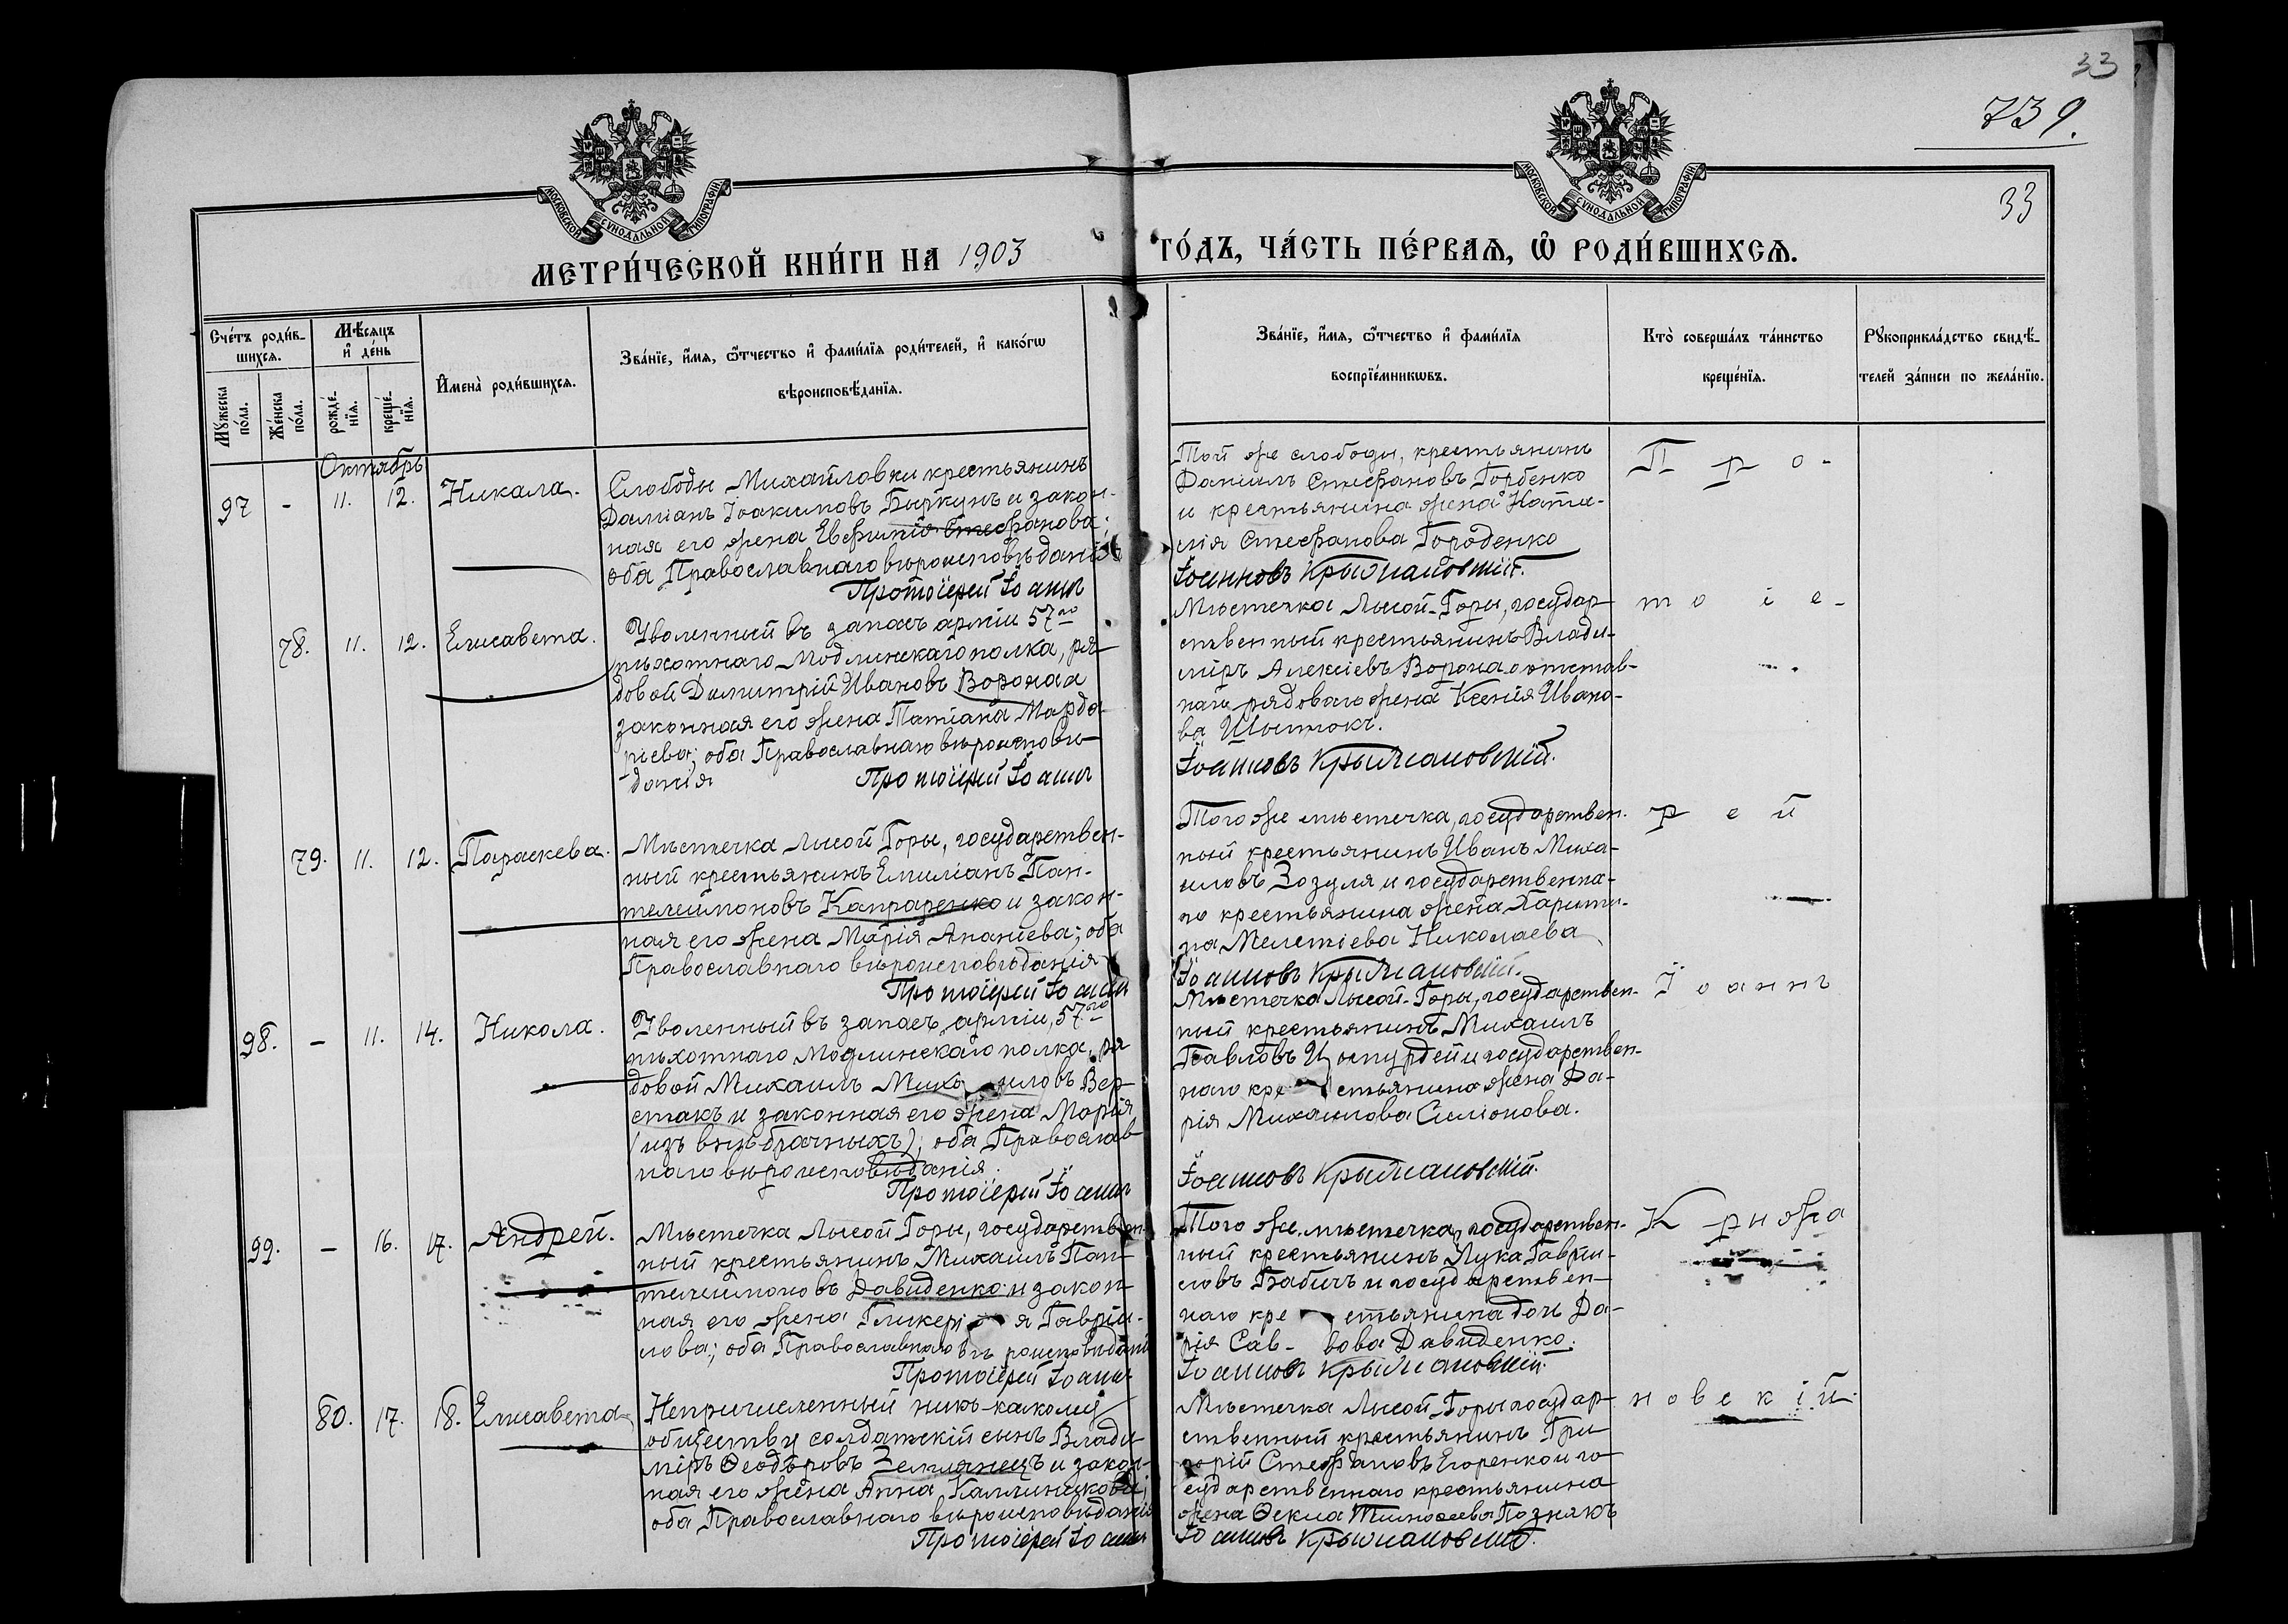 33
739.
33
МОСКОВСКОЙ СУНОДАЛЬНОЙ ТИПОГРАФІИ
МОСКОВСКОЙ СУНОДАЛЬНОЙ ТИПОГРАФІИ
МЕТРИ́ЧЕСКОЙ КНИ́ГИ НА 1903
ГО́ДЪ, ЧА́СТЬ ПЕ́РВАЯ, Ѡ РОДИ́ВШИХСЯ.
Сче́тъ роди́в-
шихся.
Мꙋ́жеска по́ла.
Же́нска по́ла.
Мѣ́сяцъ
и҆ де́нь
рожде́-
нїя.
креще́-
нїя.
И҆мена̀ роди́вшихся.
Зва́нїе, и҆́мя, ѻ҆́тчество и҆ фами́лїя роди́телей, и҆ како́гѡ
вѣроисповѣ́данїя.
Зва́нїе, и҆́мя, ѻ҆́тчество и҆ фами́лїя
воспрїе́мникѡвъ.
Кто̀ соверша́лъ та́инство
креще́нїя.
Рꙋкоприкла́дство свидѣ́-
телей за́писи по жела́нїю.
Октябрь
97 - 11. 12. Никола.
Слободы Михайловки крестьянинъ
Даміанъ Іоакимовъ и закон-
ная его жена Евфимія Стефанова;
оба Православнаго вѣроисповѣданія
Протоіерей Іоаннъ
Той же слободы, крестьянинъ
Даніилъ Стефановъ Горбенко
и крестьянина жена Ната-
лія Стефанова Городенко
Іоанновъ Крыжановскій.
78. 11. 12. Елисавета.
Уволенный въ запасъ арміи 57го
пѣхотнаго Модлинскаго полка, ря-
довой Димитрій Ивановъ Ворона и
законная его жена Татіана Марда-
ріева; оба Православнаго вѣроисповѣ-
данія Протоіерей Іоаннъ
Мѣстечка Лысой-Горы, государ-
ственный крестьянинъ Влади-
міръ Алексіевъ Ворона и отстав-
наго рядоваго жена Ксенія Ивано-
ва
Іоанновъ Крыжановскій.
79. 11. 12. Параскева.
Мѣстечка Лысой Горы, государствен-
ный крестьянинъ Емиліанъ Пан-
телеимоновъ Капраренко и закон-
ная его жена Марія Ананіева; оба
Православнаго вѣроисповѣданія
Протоіерей Іоаннъ
Того же мѣстечка, государствен-
ный крестьянинъ Иванъ Миха-
иловъ Зозуля и государственна-
го крестьянина жена Харити-
на Мелетіева Николаева
Іоанновъ Крыжановскій.
98. - 11. 14. Никола.
Уволенный въ запасъ арміи, 57го
пѣхотнаго Модлинскаго полка, ря-
довой Михаилъ Михаиловъ Вер-
стакъ и законная его жена Марія
(изъ внѣбрачныхъ); оба Православ-
наго вѣроисповѣданія.
Протоіерей Іоаннъ
Мѣстечка Лысой-Горы, государствен-
ный крестьянинъ Михаилъ
Павловъ и государствен-
наго крестьянина жена Да-
рія Михаилова Симонова.
Іоанновъ Крыжановскій.
99. - 16. 17. Андрей.
Мѣстечка Лысой Горы, государствен-
ный крестьянинъ Михаилъ Пан-
телеимоновъ Давиденко и закон-
ная его жена Гликерія Гаврии-
лова; оба Православнаго вѣроисповѣданія
Протоіерей Іоаннъ
Того же мѣстечка, государствен-
ный крестьянинъ Лука Гаврии-
ловъ Бабичъ и государствен-
наго крестьянина дочь Да-
рія Саввова Давиденко.
Іоанновъ Крыжановскій.
80. 17. 18. Елисавета
Непричисленный ни къ какому
обществу солдатскій сынъ Влади-
міръ Ѳеодоровъ Землянецъ и закон-
ная его жена Анна Каллиникова;
оба Православнаго вѣроисповѣданія
Протоіерей Іоаннъ
Мѣстечка Лысой-Горы государ-
ственный крестьянинъ Гри-
горій Стефановъ Егоренко и го-
сударственнаго крестьянина
жена Ѳекла Тимоѳеева Познякъ
Іоанновъ Крыжановскій.
Про-
тоіе-
рей
Іоаннъ
Крыжа
новскій.